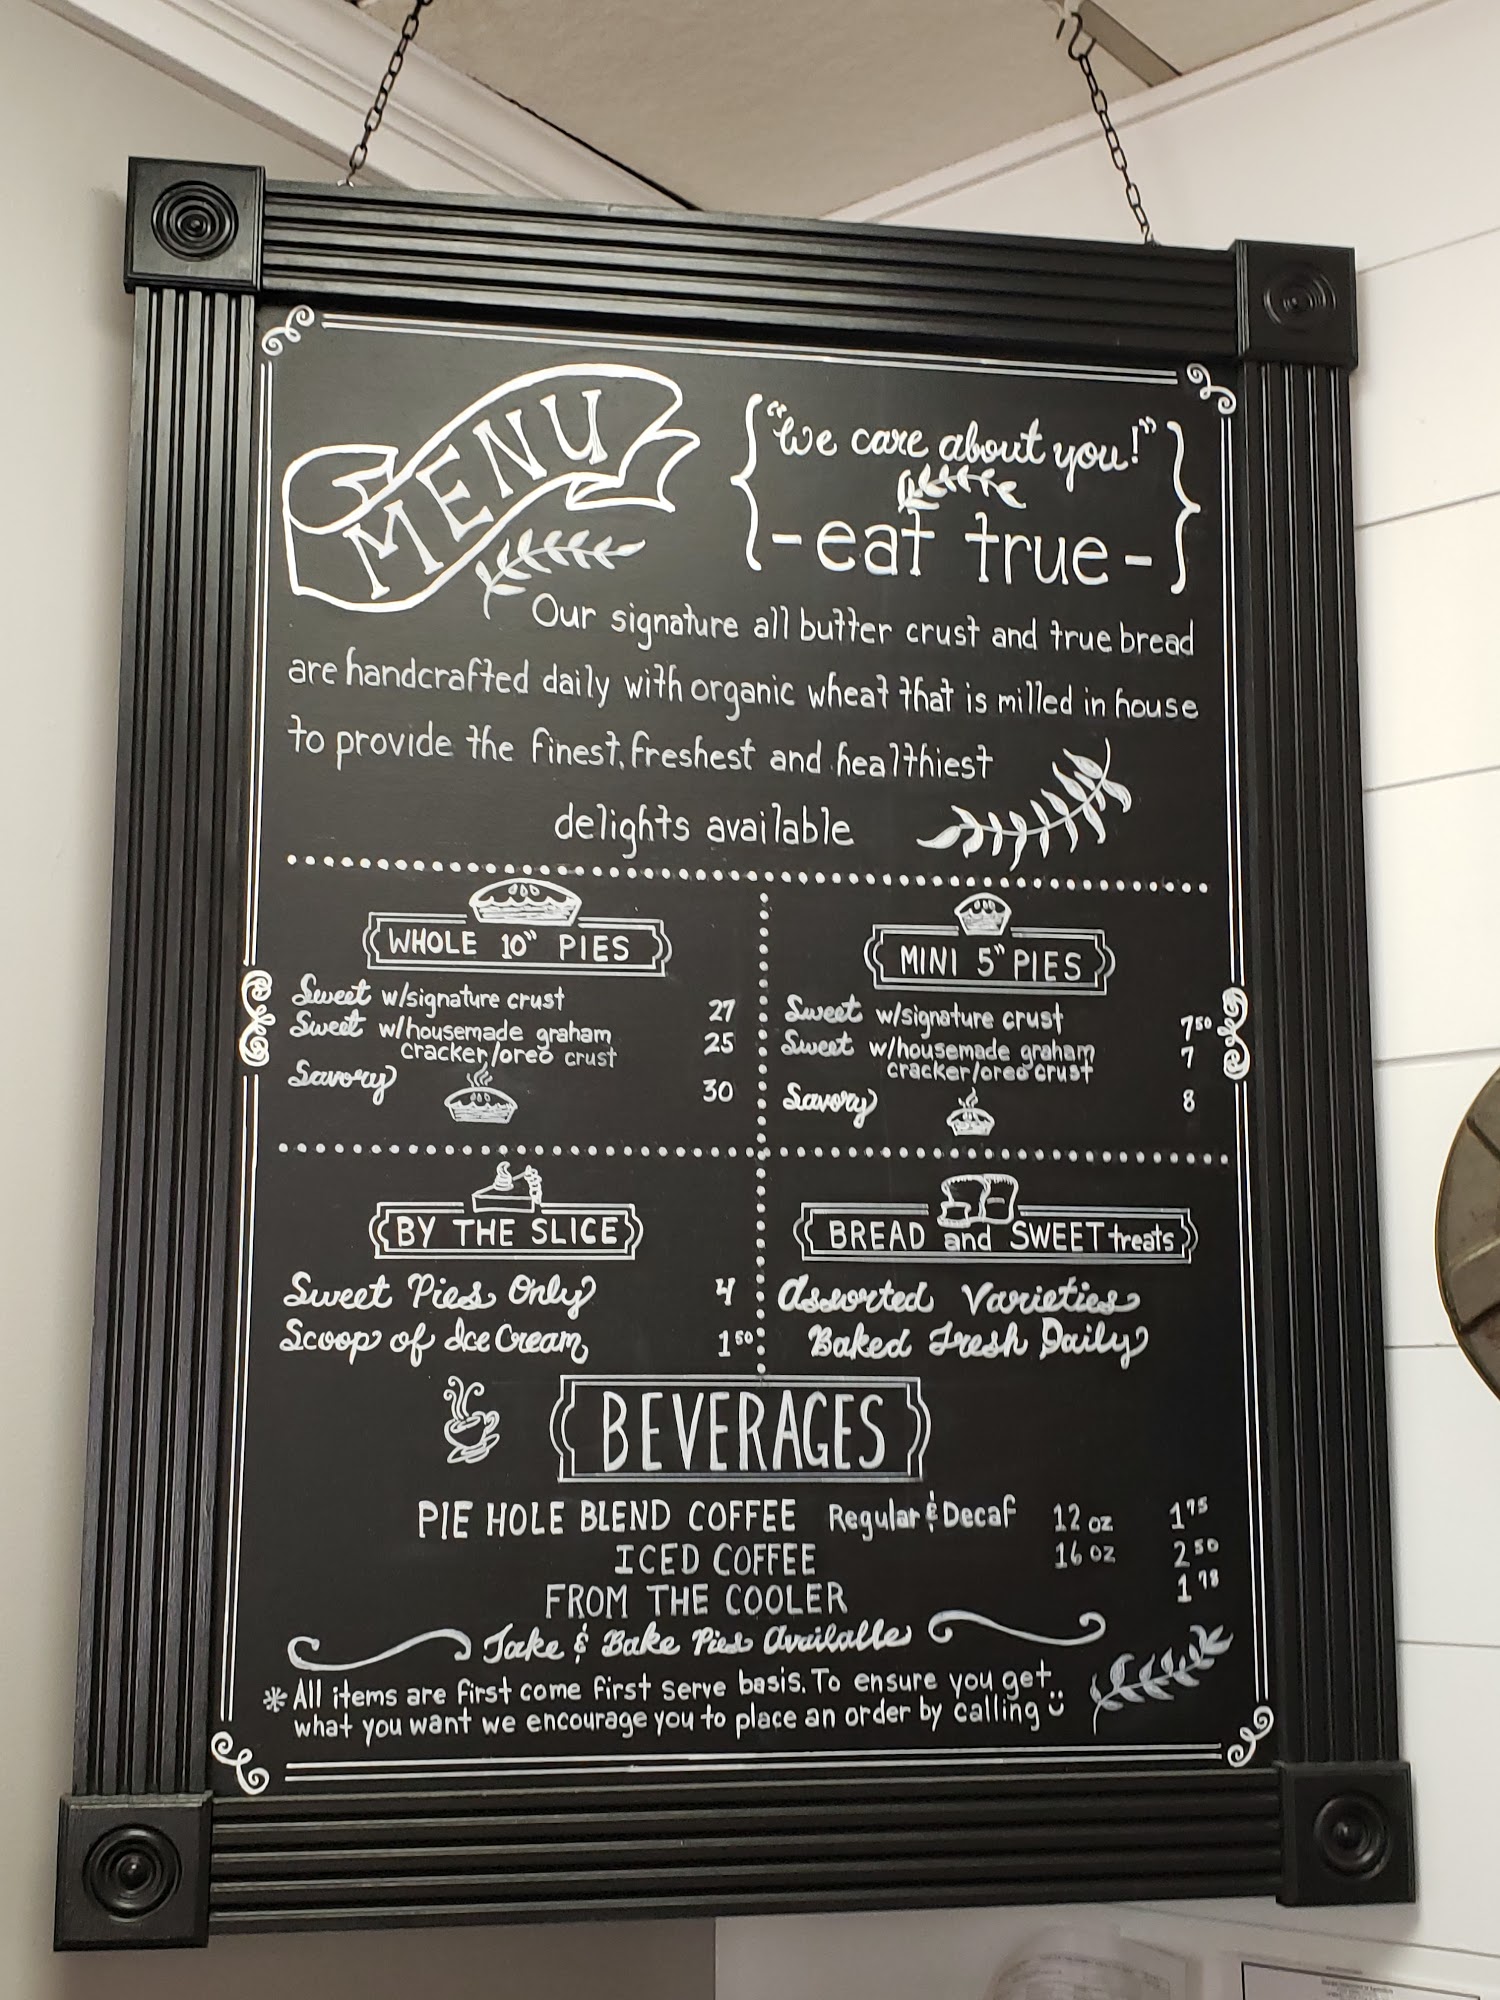 MENU
"We care about you!"
- eat true -
Our signature all butter crust and true bread
are handcrafted daily with organic wheat that is milled in house
to provide the finest, freshest and healthiest
delights available
WHOLE 10" PIES
Sweet w/signature crust 27
Sweet w/housemade graham 25
cracker/oreo crust
Savory 30
MINI 5" PIES
Sweet w/signature crust 7 50
Sweet w/housemade graham 7
cracker/oreo crust
Savory 8
BY THE SLICE
Sweet Pies Only 4
Scoop of Ice Cream 1 50
BREAD and SWEET treats
Assorted Varieties
Baked Fresh Daily
BEVERAGES
PIE HOLE BLEND COFFEE Regular & Decaf 12 oz 1 75
ICED COFFEE 16 oz 2 50
FROM THE COOLER 1 78
Take & Bake Pies Available
* All items are first come first serve basis. To ensure you get
what you want we encourage you to place an order by calling